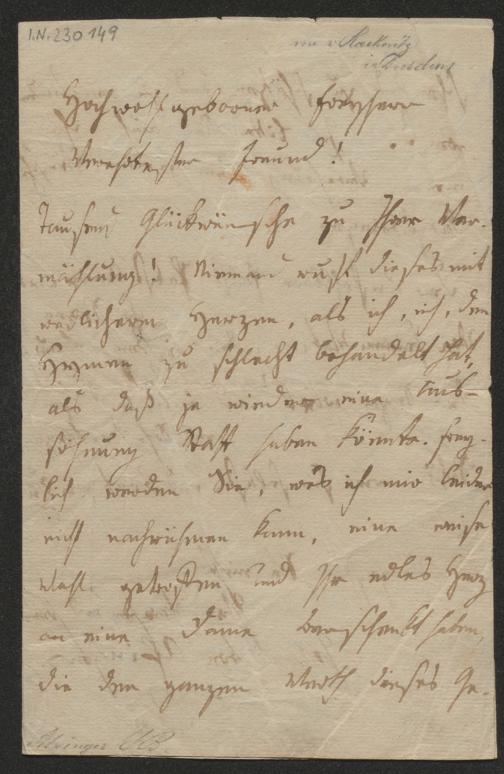 I.N. 230 149
v. Racknitz
in Dresden
Hochwohlgeborner Freyherr
Verehrtester Freund!
Tausend Glückwünsche zu Ihrer Ver-
mählung! Niemand ruft dieses mit
redlicherm Herzen, als ich, ich, den
Hymen zu schlecht behandelt hat,
als daß je wieder eine Aus-
söhnung Statt haben könnte. Frey-
lich werden Sie, was ich mir leider
nicht nachrühmen kann, eine weise
Wahl getroffen und Ihr edles Herz
an eine Dame verschenkt haben,
die den ganzen Werth dieses Ge-